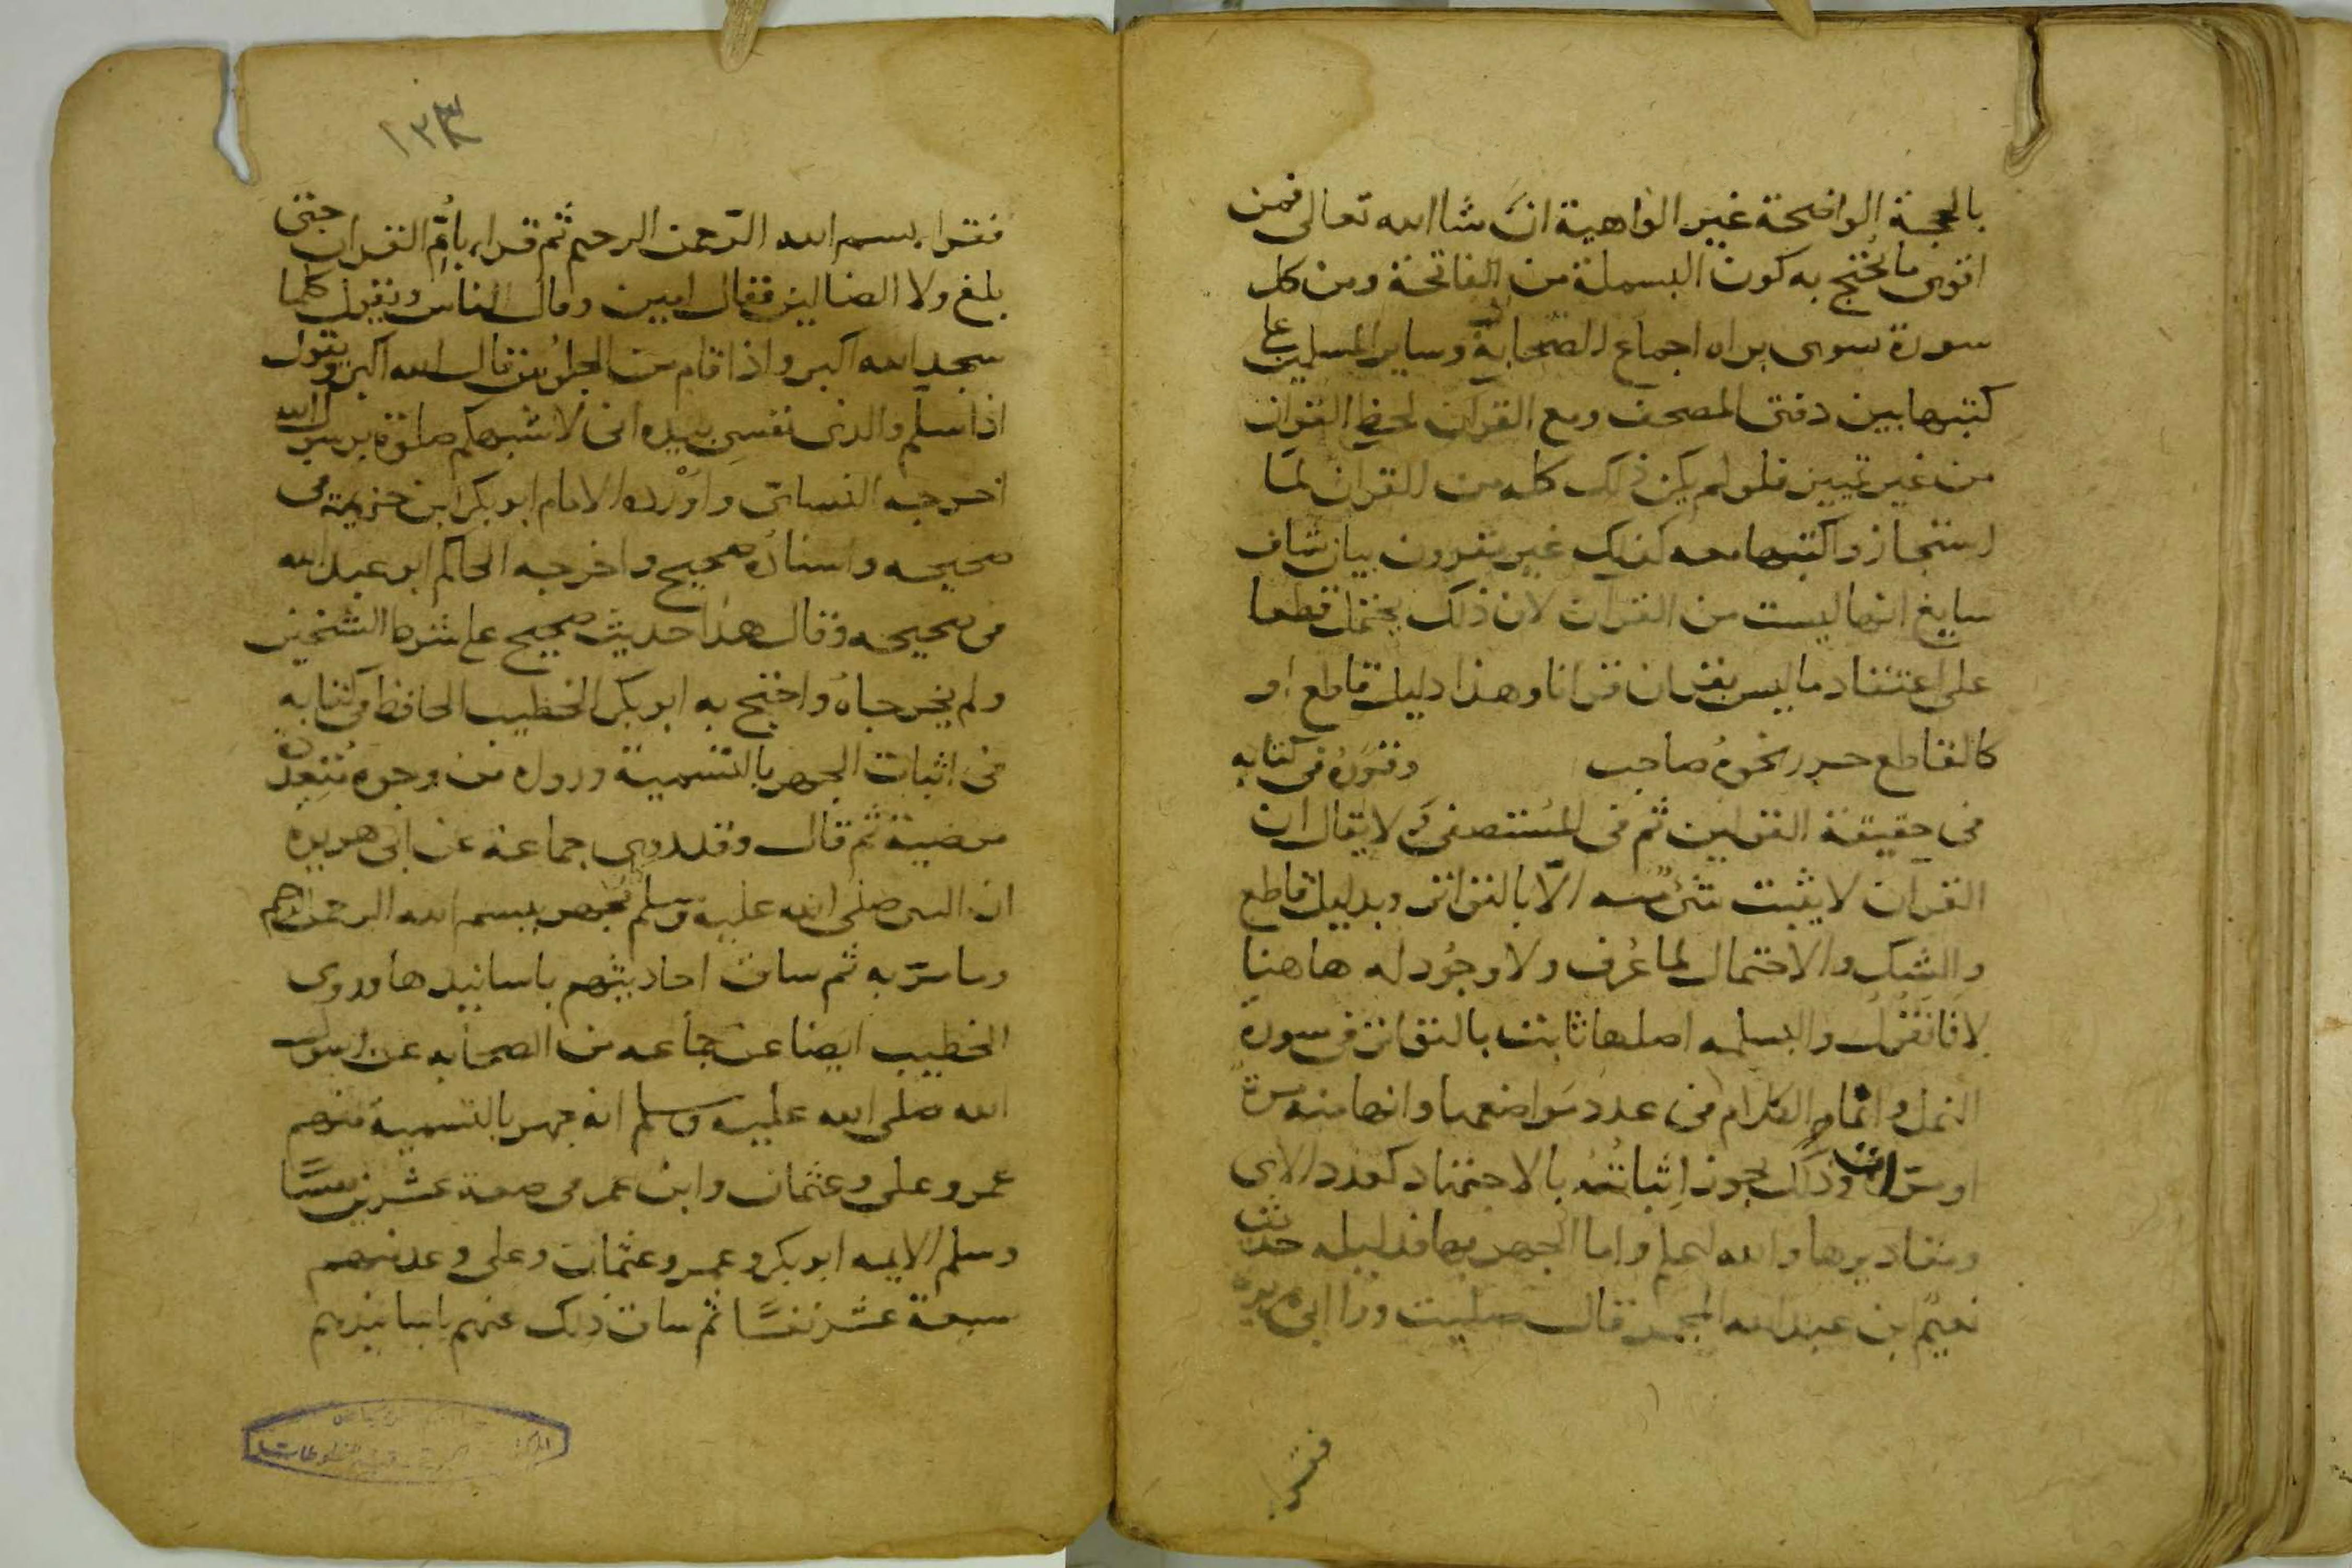 بالحجة الواضحة غير الواهية ان شا الله تعالى فمن
اقوى ما يحتج به كون البسملة من الفاتحة ومن كل
سورة سوى براه اجماع الصحابة وساير المسلمين على
كتبها بين دفتى المصحف ومع القرآن بخط القران
من غير تمييز فلو لم يكن ذلك كله من القران لما
استجازوا كتبها معه كذلك غير مقرون ببيان شاف
سايغ انها ليست من القران لان ذلك يحمل قطعا
على اعتقاد ما ليس بقران قرانا وهذا دليل قاطع او
كالقاطع حرر نحوه صاحب وقرره فى كتابه
فى حقيقة القولين ثم فى المستصفى لا يقال ان
القرآن لا يثبت شئ منه الا بالتواتر وبدليل قاطع
والشك والاحتمال لما عرف ولا وجود له هاهنا
لانا نقول والبسلمه اصلها ثابت بالتواتر فى سورة
النمل وانما الكلام فى عدد مواضعها وانها منه مرة
او مرات وذلك يجوز اثباته بالاجتهاد كعدد الاى
ومقاديرها والله اعلم واما الجهر بها فدليله حديث
نعيم ابن عبد الله المجمر قال صليت ورا ابى هريرة
فقرا
١٢٣
فقرا بسم الله الرحمن الرحيم ثم قرا بأم القران حتى
بلغ ولا الضالين فقال امين وقال الناس ويقول كلما
سجد الله اكبر واذا قام من الجلوس قال الله اكبر ويقول
اذا سلم والذى نفسى بيده انى لاشبهكم صلوة برسول الله
اخرجه النسائى واورده الامام ابو بكر ابن خزيمة فى
صحيحه واسناده صحيح واخرجه الحاكم ابو عبد الله
فى صحيحه وقال هذا حديث صحيح على شرط الشيخين
ولم يخرجاه واحتج به ابو بكر الخطيب الحافظ فى كتابه
فى اثبات الجهر بالتسمية ورواه من وجوه متعددة
مرضية ثم قال وقد روى جماعة عن ابى هريرة
ان النبى صلى الله عليه وسلم جهر ببسم الله الرحمن الرحيم
وياسر به ثم ساق احاديثهم باسانيدها وروى
الخطيب ايضا عن جماعه من الصحابه عن رسول
الله صلى الله عليه وسلم انه جهر بالتسمية منهم
عمر وعلى وعثمان وابن عمر فى عشرين نفسًا
الايمه ابو بكر وعمر وعثمان وعلى وعد منهم
سبعة عشر نفسًا ثم ساق ذلك عنهم باسانيدهم